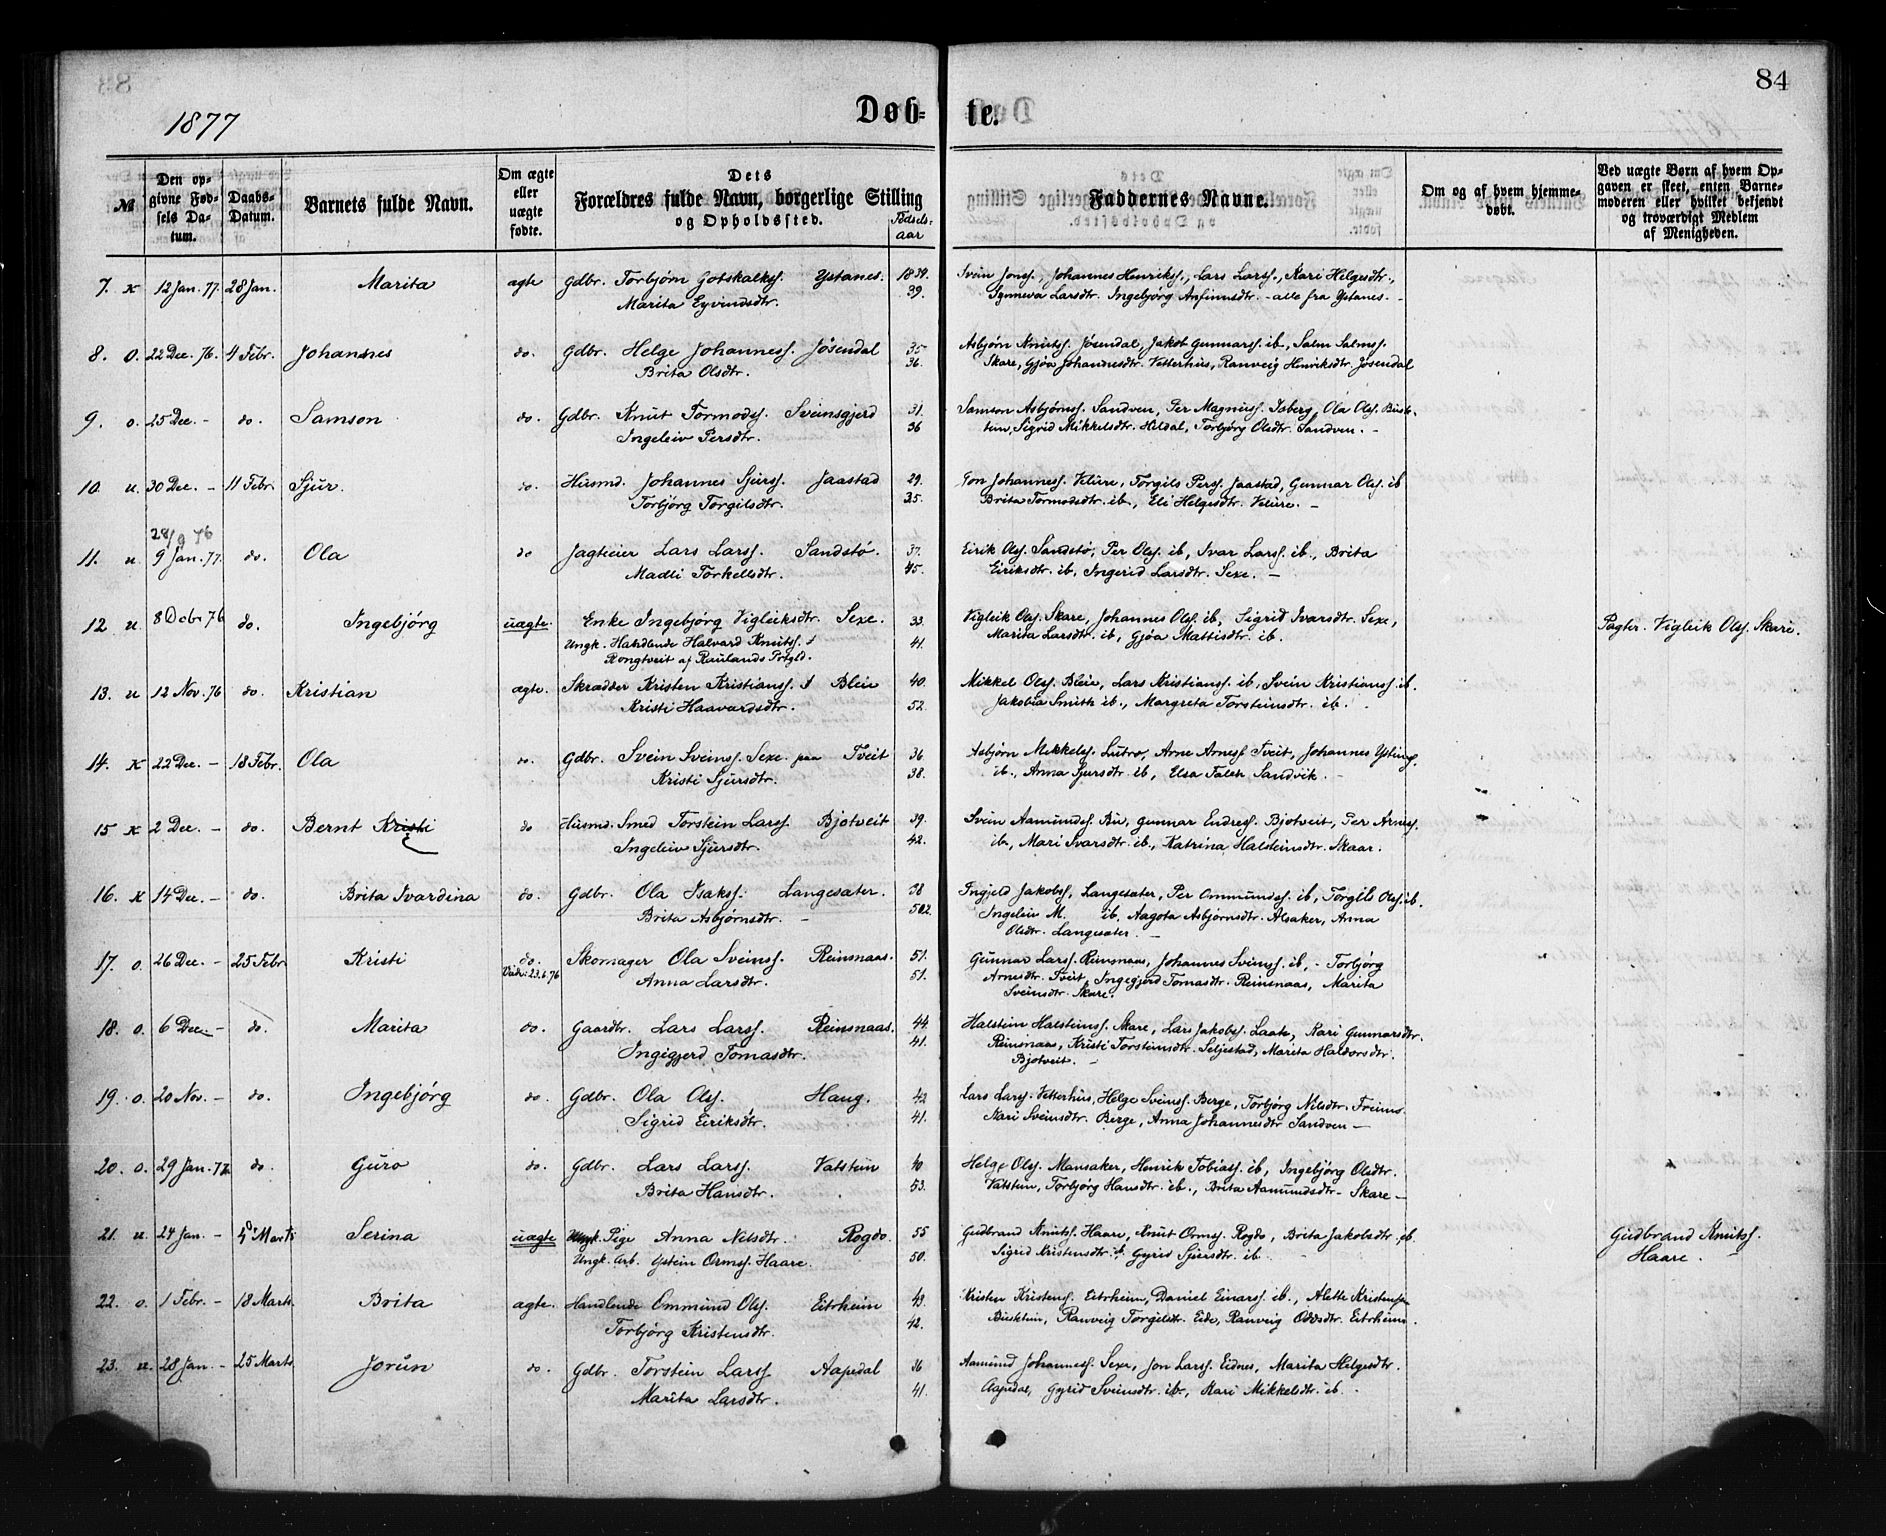 84
1877
Døb-
te.
№
Den op-
givne Fød-
sels Da-
tum.
Daabs-
Datum.
Barnets fulde Navn.
Om ægte
eller
uægte
fødte.
Dets
Forældres fulde Navn, borgerlige Stilling
og Opholdssted.
Fødsels-
aar
Faddernes Navne.
Om og af hvem hjemme-
døbt.
Ved uægte Børn af hvem Op-
gaven er skeet, enten Barne-
moderen eller hvilket bekjendt
og troværdigt Medlem
af Menigheden.
7. K 12 Jan. 77. 28 Jan. Marita ægte Gdbr. Torbjørn Gotskalks. Ystanes. 1839.
Marita Eyvindsdtr. 39.
Svein Jons., Johannes Henriks., Lars Lars., Kari Helgesdtr.,
Synneva Larsdtr. Ingebjørg Arfinnsdtr. - alle fra Ystanes. -
8. o. 22 Dec. 76. 4 Febr. Johannes do. Gdbr. Helge Johanness. Jøsendal 35
Brita Olsdtr. 36.
Asbjørn Knuts. Jøsendal, Jakob Gunnars. ib., Salm Salms.
Skare, Gjøa Johannesdtr. Vetterhus, Ranveig Henriksdtr. Jøsendal
9. o. 25 Dec. - do. Samson do. Gdbr. Knut Tormods. Sveinsgjerd 31.
Ingeleiv Persdtr. 36
Samson Asbjørns. Sandven, Per Magnus. Isberg, Ola Ols. Bust-
tein, Sigrid Mikkelsdtr. Hildal, Torbjørg Olsdtr. Sandven. -
10. u. 30 Dec. - 11 Febr. Sjur. do. Husmd. Johannes Sjurs. Jaastad 29.
Torbjørg Torgilsdtr. 35.
Jon Johannes. Velure, Torgils Pers. Jaastad, Gunnar Ols. ib
Brita Tormodsdtr. ib., Eli Helgesdtr. Velure. -
28/9 76
11. u. 9 Jan. 77. do. Ola do Jagteier Lars Lars. Sandstø. 37.
Madli Torkellsdtr. 45.
Eirik Ols. Sandstø, Per Ols. ib, Ivar Lars. ib., Brita
Eiriksdtr. ib, Ingerid Larsdtr. Sexe. -
12 u. 8 Octbr 76 do. Ingebjørg uægte. Enke Ingebjørg Vigleiksdtr. Sexe. 33.
Ungk. Handlende Halvard Knuts. 41.
Rongtveit af Raulands Prtgld.
Vigleik Ols. Skare, Johannes Ols. ib, Sigrid Ivarsdtr. Sexe,
Marita Larsdtr. ib, Gjøa Mattisdtr. ib.
Vigleik Ols. Skare.
13. u 12 Nov. 76 do. Kristian ægte. Skrædder Kristen Kristians. Bleie 40.
Kristi Haavardsdtr. 52.
Mikkel Ols. Bleie, Lars Kristians. ib, Svein Kristians. ib.
Jakobia Smith ib., Margreta Torsteinsdtr. ib.
14. K 22 Dec. - 18 Febr. Ola do. Gdbr. Svein Sveins. Sexe paa Tveit 36
Kristi Sjursdtr. 38.
Asbjørn Mikkels. Lutro, Arne Arnes. Tveit, Johannes
ib., Anna Sjursdtr. ib, Elsa Sandvik.
15 K 2 Dec. - do. Bernt Kristi do Husmd. Smed Torstein Lars. Bjotveit 39.
Ingeleiv Sjursdtr. 42.
Svein Aamunds. Bu, Gunnar Endres. Bjotveit, Per Arnes.
ib., Mari Ivarsdtr. ib, Katrina Halsteinsdtr. Skaar.
16. K 14 Dec. - do. Brita Ivardina do. Gdbr. Ola Isaks. Langesæter. 38
Brita Asbjørnsdtr. - 52.
Ingjeld Jakobs. Langesæter, Per Ommunds. ib, Torgils Ols. ib.
Ingeleiv M. ib, Aagota Asbjørnsdtr. Alsaker, Anna
Olsdtr. Langesæter. -
17. o. 26 Dec. - 25 Febr Kristi do. Skomager Ola Sveins. Reinsnaas. 51.
23.6.76 Anna Larsdtr. 51.
Gunnar Lars. Reinsnaas, Johannes Sveins. ib, - Torbjørg
Arnesdtr. Tveit, Ingegjerd Tomasdtr. Reinsnaas, Marita
Sveinsdtr. Skare.
18. o. 6 Dec. - do. Marita do. Gaardbr. Lars Lars. Reinsnaas. 44.
Ingigjerd Tomasdtr. 41.
Halstein Halsteins. Skare, Lars Jakobs. Laate, Kari Gunnarsdtr.
Reinsnaas, Kristi Torsteinsdtr. Seljestad, Marita Haldorsdtr.
Bjotveit. -
19. o. 20 Nov. - do. Ingebjørg do. Gdbr. Ola Ols. Haug. 42
Sigrid Eiriksdtr. 41.
Lars Lars. Vetterhus, Helge Sveins. Berge, Torbjørg Nilsdtr. Freim.
Kari Sveinsdtr. Berge, Anna Johannesdtr Sandven -
20. o. 29 Jan. 77. do. Guro do. Gdbr. Lars Lars. Vatstein 40
Brita Hansdtr. 53.
Helge Ols. Mansaker, Henrik Tobias. ib, Ingebjørg Olsdtr.
Vatstein, Torbjørg Hansdtr. ib., Brita Aamundsdtr. Skare -
21. u. 24 Jan. - Marts Serina uægte Pige Anna Nilsdtr. Rogdo. 55
Ungk. Arb. Ystein Orms. Haare. 50.
Gudbrand Knuts. Haare, Knut Orms. Rogdo, Brita Jakobsdtr. ib.
Sigrid Kristensdtr. ib, Gyrid Sjursdtr. ib.
Gudbrand Knuts.
Haare.
22. o. 1 Febr. - 18 Marts. Brita ægte. Handlende Ommund Ols. Eitrheim 43.
Torbjørg Kristensdtr. 42.
Kristen Kristens. Eitrheim, Daniel Einars. ib., Alette Kristensen
Bustetun, Ranveig Torgilsdtr. Eide, Ranveig Oddsdtr. Eitrheim.
23. u. 28 Jan. - 25 Marts Jorun do. Gdbr. Torstein Lars. Aapedal 36
Marita Larsdtr. 41.
Aamund Johannes. Sexe, Jon Lars. Eidnes, Marita Helgesdtr.
Aapedal, Gyrid Sveinsdtr. ib., Kari Mikkelsdtr. ib.